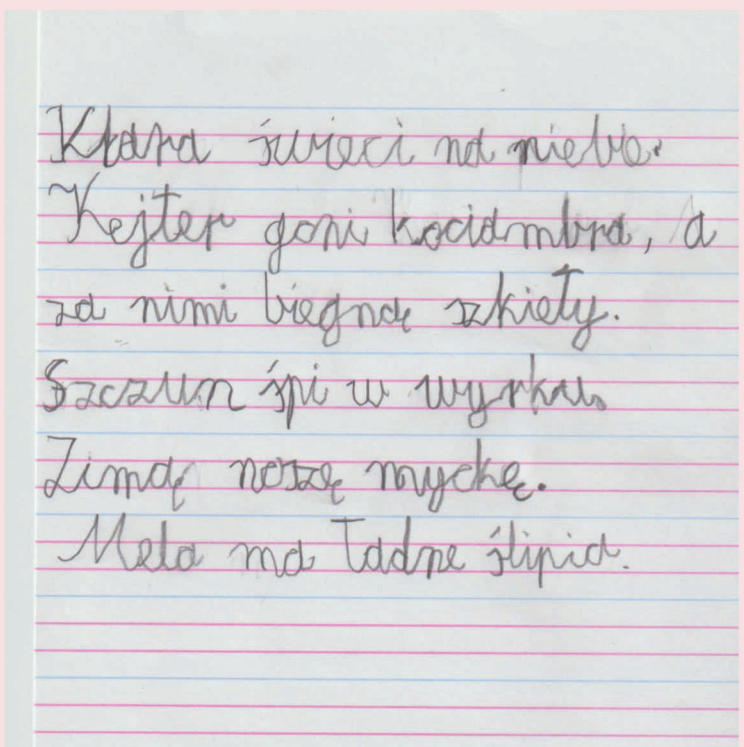 Klara świeci na niebie.
Kejter goni kociambra, a
za nimi biegną szkieły.
Szczun śpi w wyrku.
Zimą noszę myckę.
Mela ma ładne ślipia.